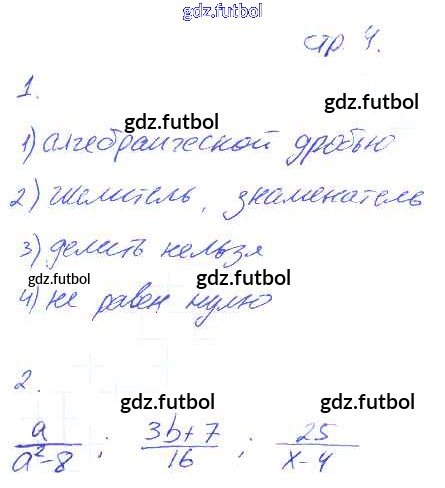 gdz.futbol
стр. 4.
gdz.futbol
1.
gdz.futbol
gdz.futbol
1) алгебраической дробью
gdz.futbol
2) числитель, знаменатель
3) делить нельзя
gdz.futbol
gdz.futbol
4) не равен нулю
2.
gdz.futbol
gdz.futbol
a/(a²-8) ; (3b+7)/16 ; 25/(x-4)